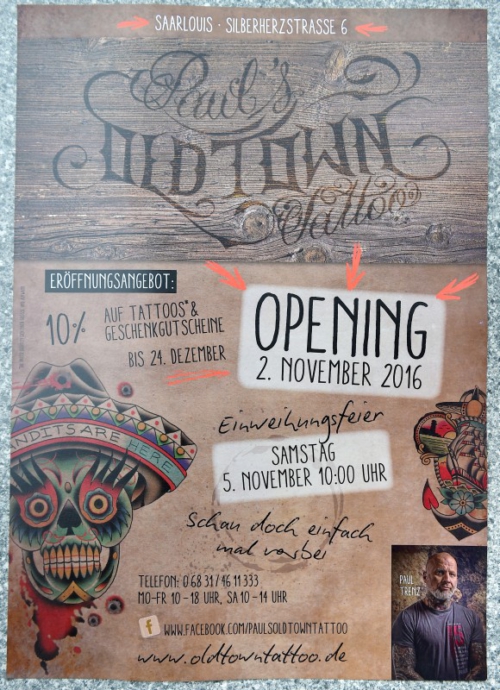 SAARLOUIS · SILBERHERZSTRASSE 6
Paul's
OLDTOWN
Tattoo
ERÖFFNUNGSANGEBOT:
10% AUF TATTOOS*&
GESCHENKGUTSCHEINE
BIS 24. DEZEMBER
OPENING
2. NOVEMBER 2016
Einweihungsfeier
SAMSTAG
5. NOVEMBER 10:00 UHR
NDITS ARE HERE
Schau doch einfach
mal vorbei
TELEFON: 0 68 31 / 46 11 333
MO-FR 10 - 18 UHR, SA 10 - 14 UHR
f WWW.FACEBOOK.COM/PAULSOLDTOWNTATTOO
www.oldtowntattoo.de
PAUL
TRENZ